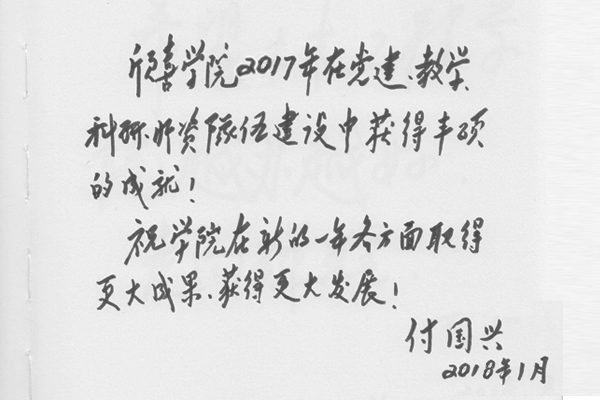 欣喜学院2017年在党建、教学、
科研、师资队伍建设中获得丰硕
的成就！
祝学院在新的一年各方面取得
更大成果、获得更大发展！
付国兴
2018年1月